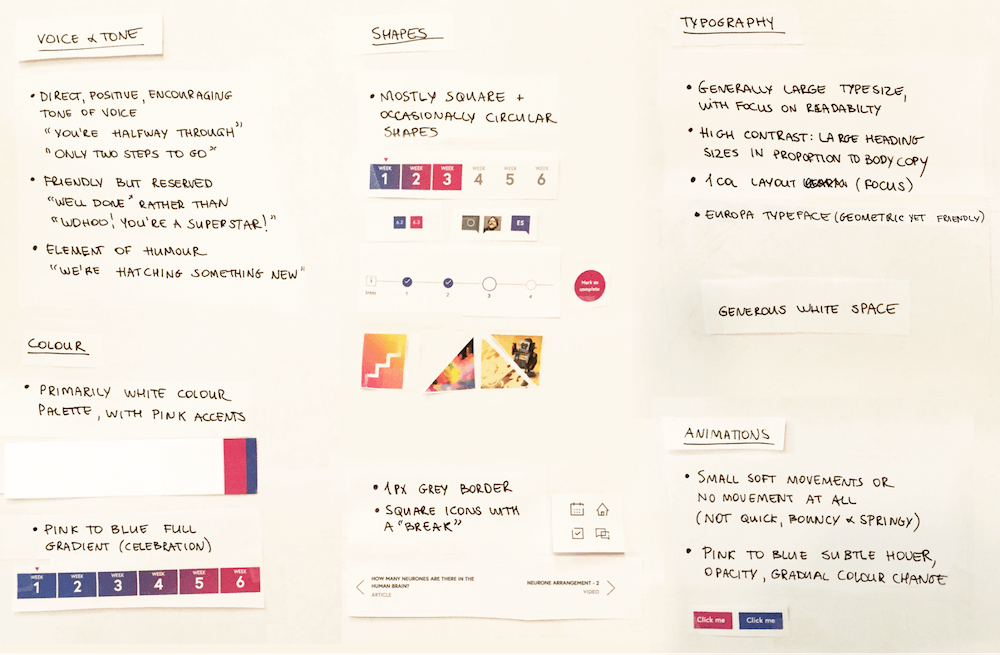 VOICE & TONE
• DIRECT, POSITIVE, ENCOURAGING
TONE OF VOICE
"YOU'RE HALFWAY THROUGH"
"ONLY TWO STEPS TO GO"
• FRIENDLY BUT RESERVED
"WELL DONE" RATHER THAN
"WOHOO! YOU'RE A SUPERSTAR!"
• ELEMENT OF HUMOUR
"WE'RE HATCHING SOMETHING NEW"
COLOUR
• PRIMARILY WHITE COLOUR
PALETTE, WITH PINK ACCENTS
• PINK TO BLUE FULL
GRADIENT (CELEBRATION)
WEEK WEEK WEEK WEEK WEEK WEEK
1 2 3 4 5 6
SHAPES
• MOSTLY SQUARE +
OCCASIONALLY CIRCULAR
SHAPES
WEEK WEEK WEEK WEEK WEEK WEEK
1 2 3 4 5 6
6.2 6.3 ES
Intro 1 2 3 4
Mark as
complete
• 1PX GREY BORDER
• SQUARE ICONS WITH
A "BREAK"
HOW MANY NEURONES ARE THERE IN THE
HUMAN BRAIN?
ARTICLE
NEURONE ARRANGEMENT - 2
VIDEO
TYPOGRAPHY
• GENERALLY LARGE TYPESIZE,
WITH FOCUS ON READABILTY
• HIGH CONTRAST: LARGE HEADING
SIZES IN PROPOTION TO BODY COPY
• 1 COL LAYOUT (FOCUS)
• EUROPA TYPEFACE (GEOMETRIC YET FRIENDLY)
GENEROUS WHITE SPACE
ANIMATIONS
• SMALL SOFT MOVEMENTS OR
NO MOVEMENT AT ALL
(NOT QUICK, BOUNCY & SPRINGY)
• PINK TO BLUE SUBTLE HOVER,
OPACITY, GRADUAL COLOUR CHANGE
Click me Click me